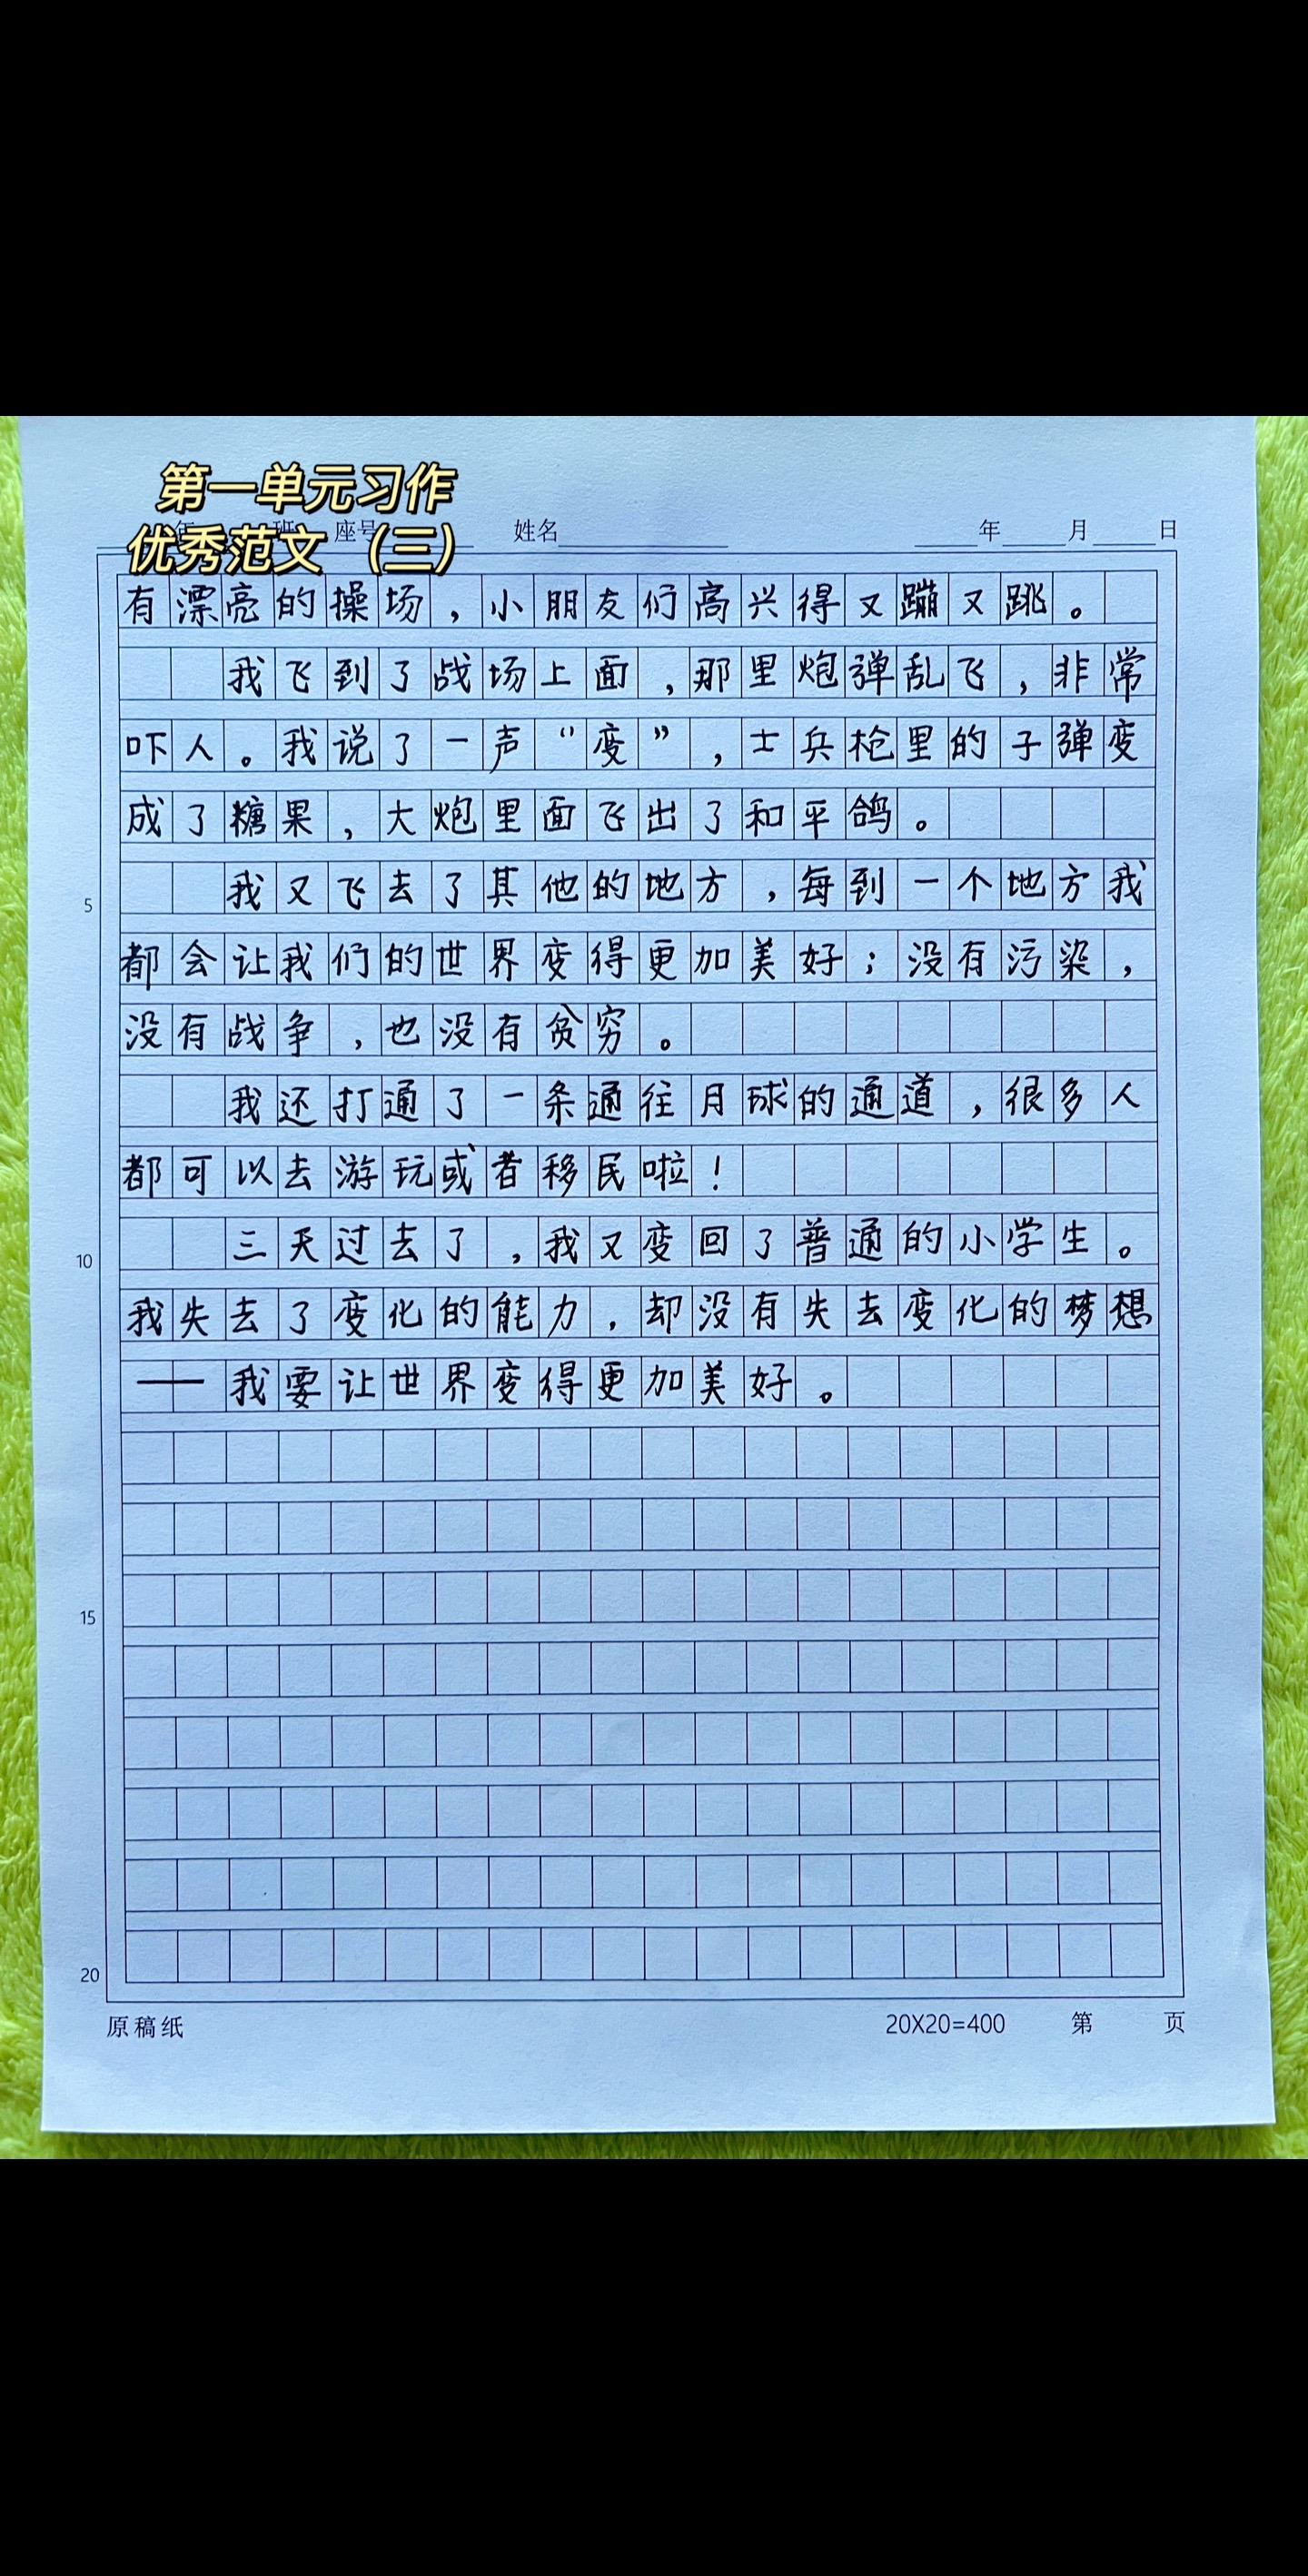 第一单元习作
优秀范文（三）
年 班 座号 姓名 年 月 日
有漂亮的操场，小朋友们高兴得又蹦又跳。
我飞到了战场上面，那里炮弹乱飞，非常
吓人。我说了一声“变”，士兵枪里的子弹变
成了糖果，大炮里面飞出了和平鸽。
5 我又飞去了其他的地方，每到一个地方我
都会让我们的世界变得更加美好；没有污染，
没有战争，也没有贫穷。
我还打通了一条通往月球的通道，很多人
都可以去游玩或者移民啦！
10 三天过去了，我又变回了普通的小学生。
我失去了变化的能力，却没有失去变化的梦想
——我要让世界变得更加美好。
15
20
原稿纸 20X20=400 第 页